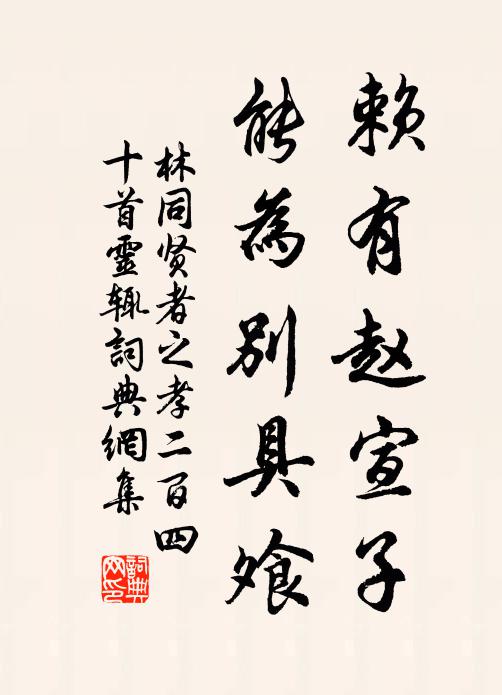 赖有赵宣子
能為别具飧
林同贤者之孝二百四
十首靈辄詞典網集
詞典
网印